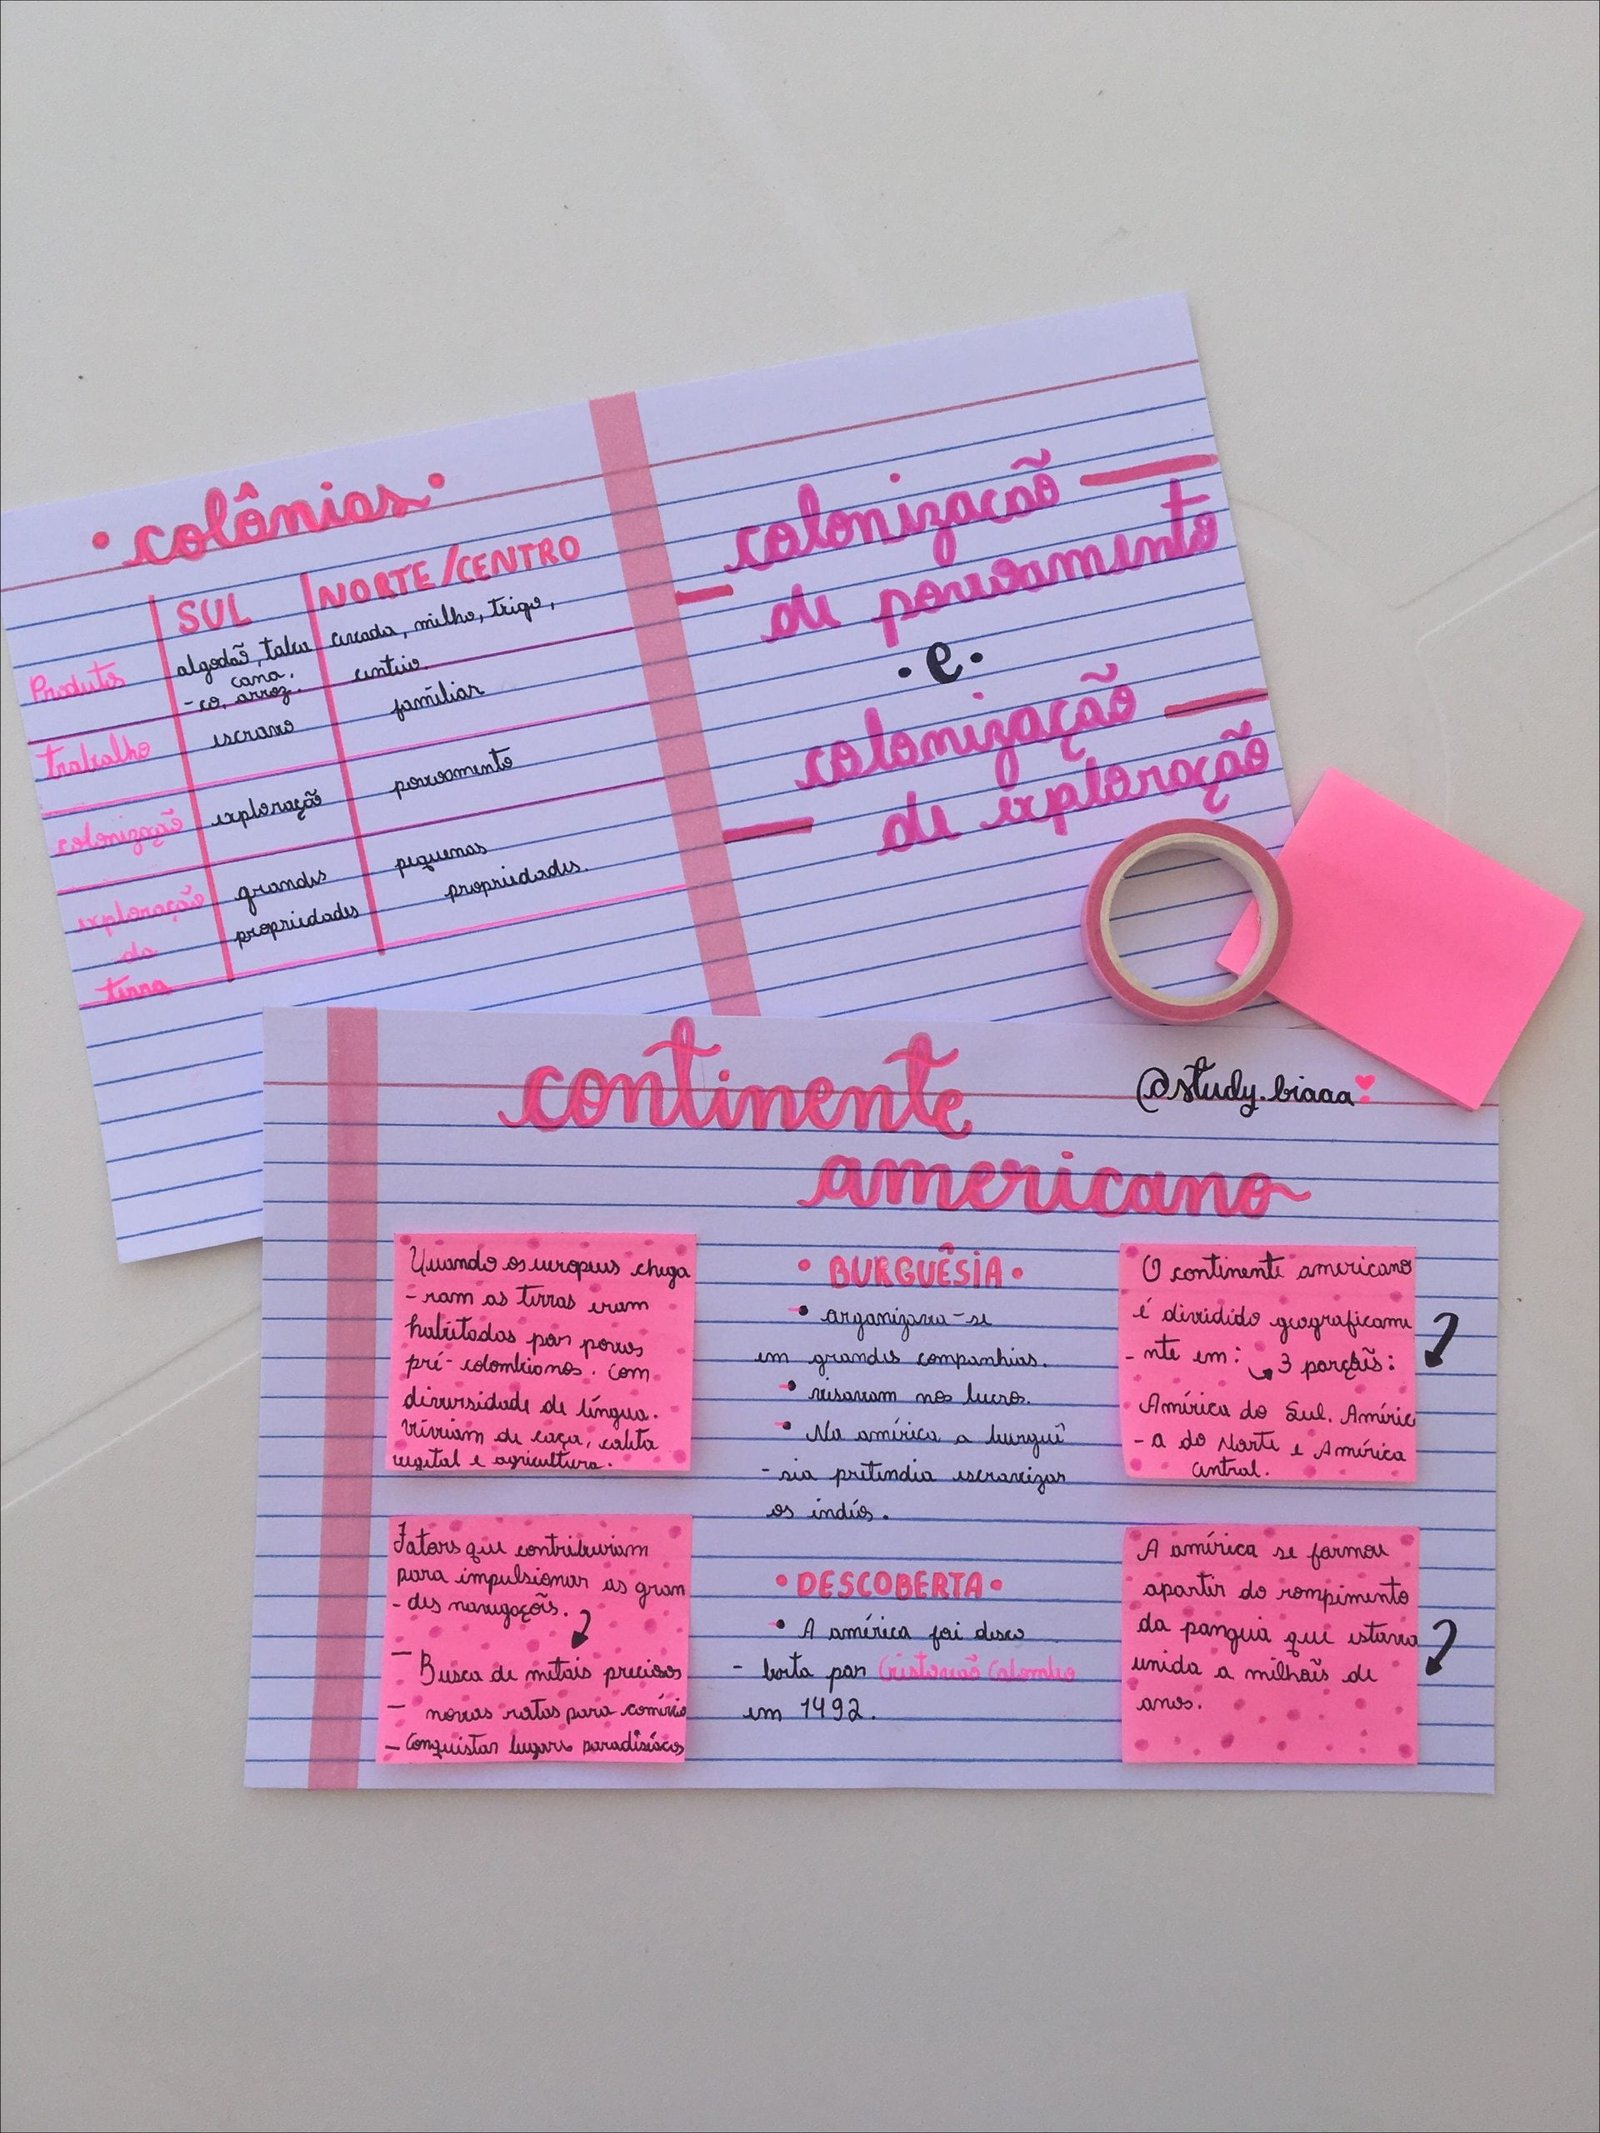 • colônias •
SUL
NORTE/CENTRO
Produtos
algodão, taba
cana,
-co, arroz.
cevada, milho, trigo,
centeio.
trabalho
escravo
familiar
colonização
exploração
povoamento
exploração
da
terra
grandes
propriedades
pequenas
propriedades.
colonização
de povoamento
• e •
colonização
de exploração
continente
americano
@study.biaaa
Quando os europeus chega
-ram as terras eram
habitadas por povos
pré-colombianos. com
diversidade de língua.
viviam de caça, coleta
vegetal e agricultura.
Fatores que contribuiam
para impulsionar as gran
-des navegações.
- Busca de metais preciosos
- novas rotas para comércio
- Conquistar lugares paradisíacos
• BURGUÊSIA •
• organizava-se
em grandes companhias.
• visavam nos lucros.
• Na américa a burguê
-sia pretendia escravizar
os indíos.
• DESCOBERTA •
• A américa foi desco
-berta por Cristovão Colombo
em 1492.
O continente americano
é dividido geograficame
-nte em: 3 porções:
América do Sul, Améric
-a do Norte e América
Central.
A américa se formou
apartir do rompimento
da pangeia que estava
unida a milhões de
anos.